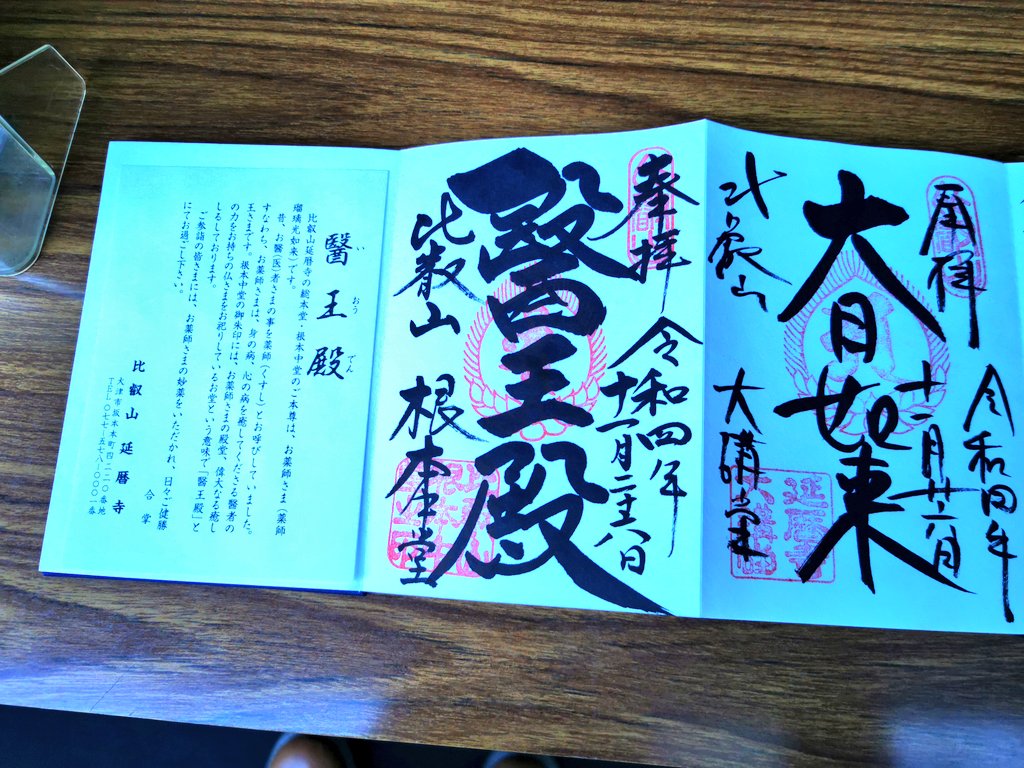 奉拝
令和四年
十一月廿六日
大日如来
比叡山 大講堂
奉拝
令和四年
十一月二十六日
醫王殿
比叡山 根本堂
醫王殿
い おう でん
比叡山延暦寺の総本堂・根本中堂のご本尊は、お薬師さま（薬師
瑠璃光如来）です。
昔、お醫（医）者さまの事を薬師（くすし）とお呼びしていました。
すなわち、お薬師さまは、身の病、心の病を癒してくださる醫者の
王さまです。根本中堂の御朱印には、お薬師さまの殿堂、偉大なる癒し
の力をお持ちの仏さまをお祀りしているお堂という意味で『醫王殿』と
しるしております。
ご参詣の皆さまには、お薬師さまの妙薬をいただかれ、日々ご健勝
にてお過ごし下さい。
合掌
比叡山 延暦寺
大津市坂本本町四二二〇番地
TEL〇七七-五七八-〇〇〇一番